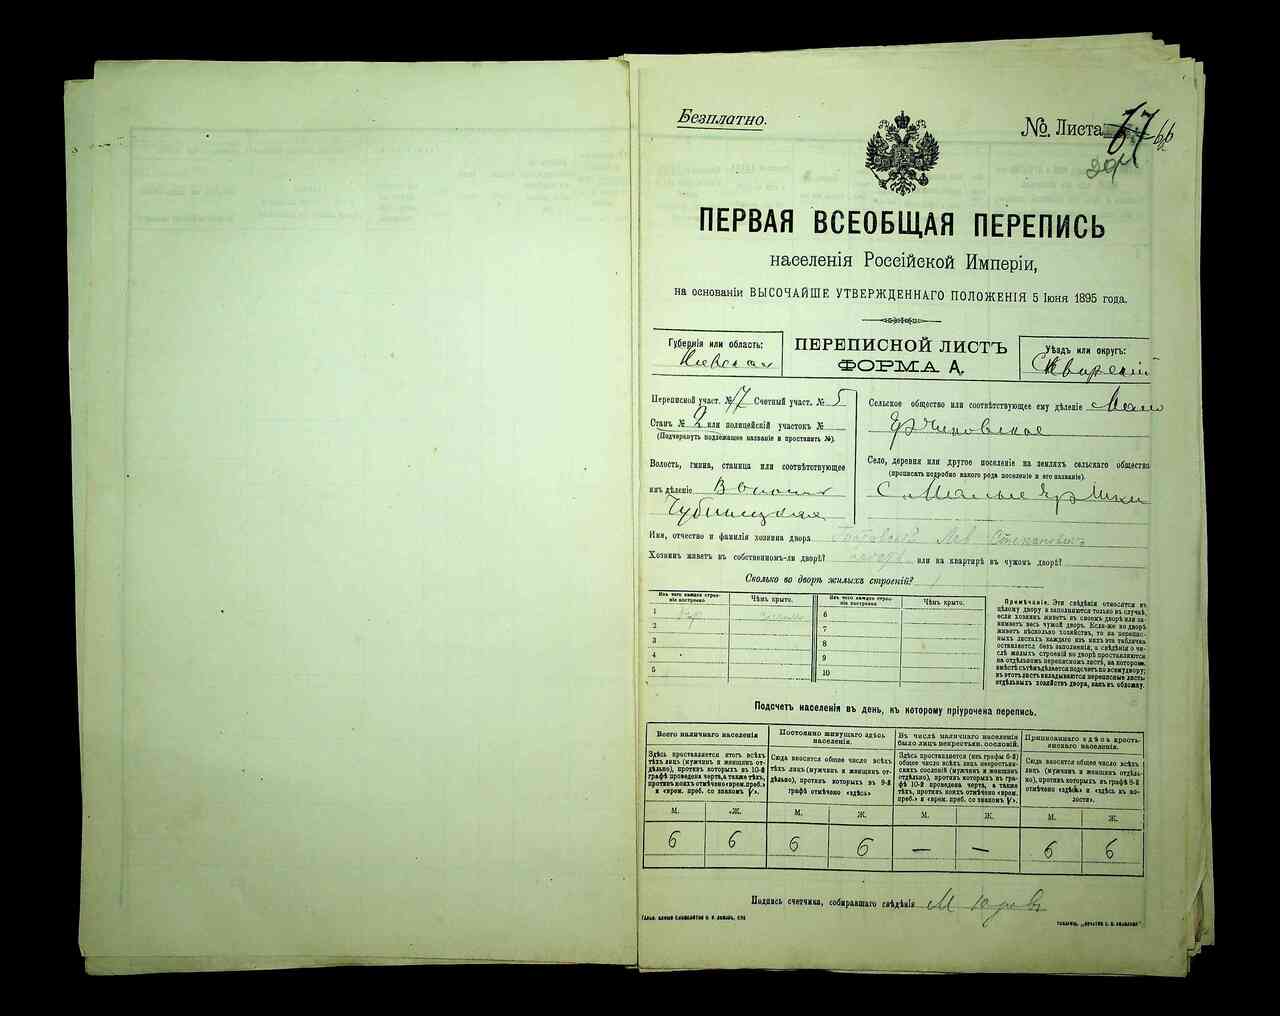 Безплатно.
№ Листа 66
ПЕРВАЯ ВСЕОБЩАЯ ПЕРЕПИСЬ
населенія Россійской Имперіи,
на основаніи ВЫСОЧАЙШЕ УТВЕРЖДЕННАГО ПОЛОЖЕНІЯ 5 Іюня 1895 года.
Губернія или область:
Киевская
ПЕРЕПИСНОЙ ЛИСТЪ
ФОРМА А.
Уѣздъ или округъ:
Сквирский
Переписной участ. № 17 Счетный участ. № 5
Станъ № 2 или полицейскій участокъ №
(Подчеркнуть подлежащее названіе и проставить №).
Волость, гмина, станица или соотвѣтствующее
имъ дѣленіе Волость
Чубинецкая
Сельское общество или соотвѣтствующее ему дѣленіе Мало
Ерчиковское
Село, деревня или другое поселеніе на земляхъ сельскаго общества
(прописать подробно какого рода поселеніе и его названіе).
С. Малые Ерчики
Имя, отчество и фамилія хозяина двора Левъ Степановичъ
Хозяинъ живетъ въ собственномъ-ли дворѣ? или на квартирѣ въ чужомъ дворѣ?
Сколько во дворѣ жилыхъ строеній? 1
Изъ чего каждое строеніе построено
Чѣмъ крыто.
Изъ чего каждое строеніе построено
Чѣмъ крыто.
1
2
3
4
5
6
7
8
9
10
Примѣчаніе. Эти свѣдѣнія относятся къ
цѣлому двору и заполняются только въ случаѣ,
если хозяинъ живетъ въ своемъ дворѣ или занимаетъ
весь чужой дворъ. Если-же во дворѣ
живетъ нѣсколько хозяйствъ, то на переписныхъ
листахъ каждаго изъ нихъ эта табличка
оставляется безъ заполненія, а свѣдѣнія о числѣ
жилыхъ строеній во дворѣ проставляются
на отдѣльномъ переписномъ листѣ, на которомъ
вмѣстѣ съ тѣмъ дѣлается подсчетъ по всему двору;
въ этотъ листъ вкладываются переписные листы
отдѣльныхъ хозяйствъ двора, какъ въ обложку.
Подсчетъ населенія въ день, къ которому пріурочена перепись.
Всего наличнаго населенія
Здѣсь проставляется итогъ всѣхъ
тѣхъ лицъ (мужчинъ и женщинъ отдѣльно),
противъ которыхъ въ 10-й
графѣ проведена черта, а также тѣхъ,
противъ коихъ отмѣчено «врем. преб.»
и «врем. преб. со знакомъ V».
Постоянно живущаго здѣсь
населенія.
Сюда вносится общее число всѣхъ
тѣхъ лицъ (мужчинъ и женщинъ отдѣльно),
противъ которыхъ въ 9-й
графѣ отмѣчено «здѣсь»
Въ числѣ наличнаго населенія
было лицъ некрестьян. сословій.
Здѣсь проставляется (изъ графы 6-й)
общее число всѣхъ лицъ некрестьянскихъ
сословій (мужчинъ и женщинъ
отдѣльно), противъ которыхъ въ графѣ
10-й проведена черта, а также
тѣхъ, противъ коихъ отмѣчено «врем.
преб.» и «врем. преб. со знакомъ V».
Приписаннаго здѣсь крестьянскаго
населенія.
Сюда вносится общее число всѣхъ
лицъ (мужчинъ и женщинъ отдѣльно),
противъ которыхъ въ графѣ 8-й
отмѣчено «здѣсь» и «здѣсь въ волости».
М. Ж. М. Ж. М. Ж. М. Ж.
6 6 6 6 — — 6 6
Подпись счетчика, собиравшаго свѣдѣнія